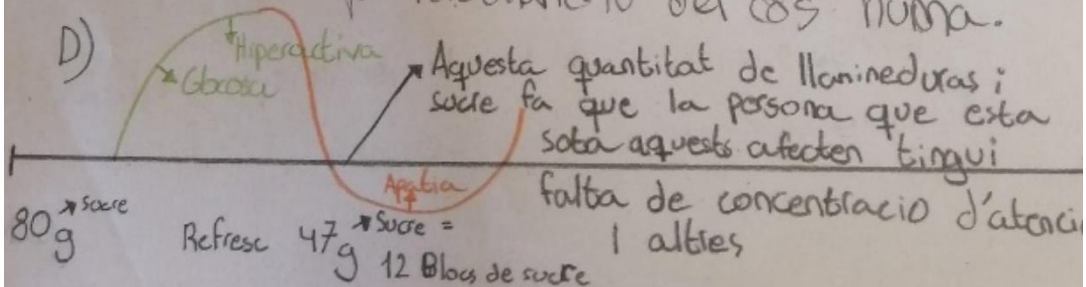 del cos huma.
D)
Hiperactiva
Glucosa
Aquesta quantitat de llamineduras i
sucre fa que la persona que esta
sota aquests afecten tingui
falta de concentracio d'atenció
I altres
Apatia
80g sucre
Refresc 47g Sucre =
12 Blocs de sucre